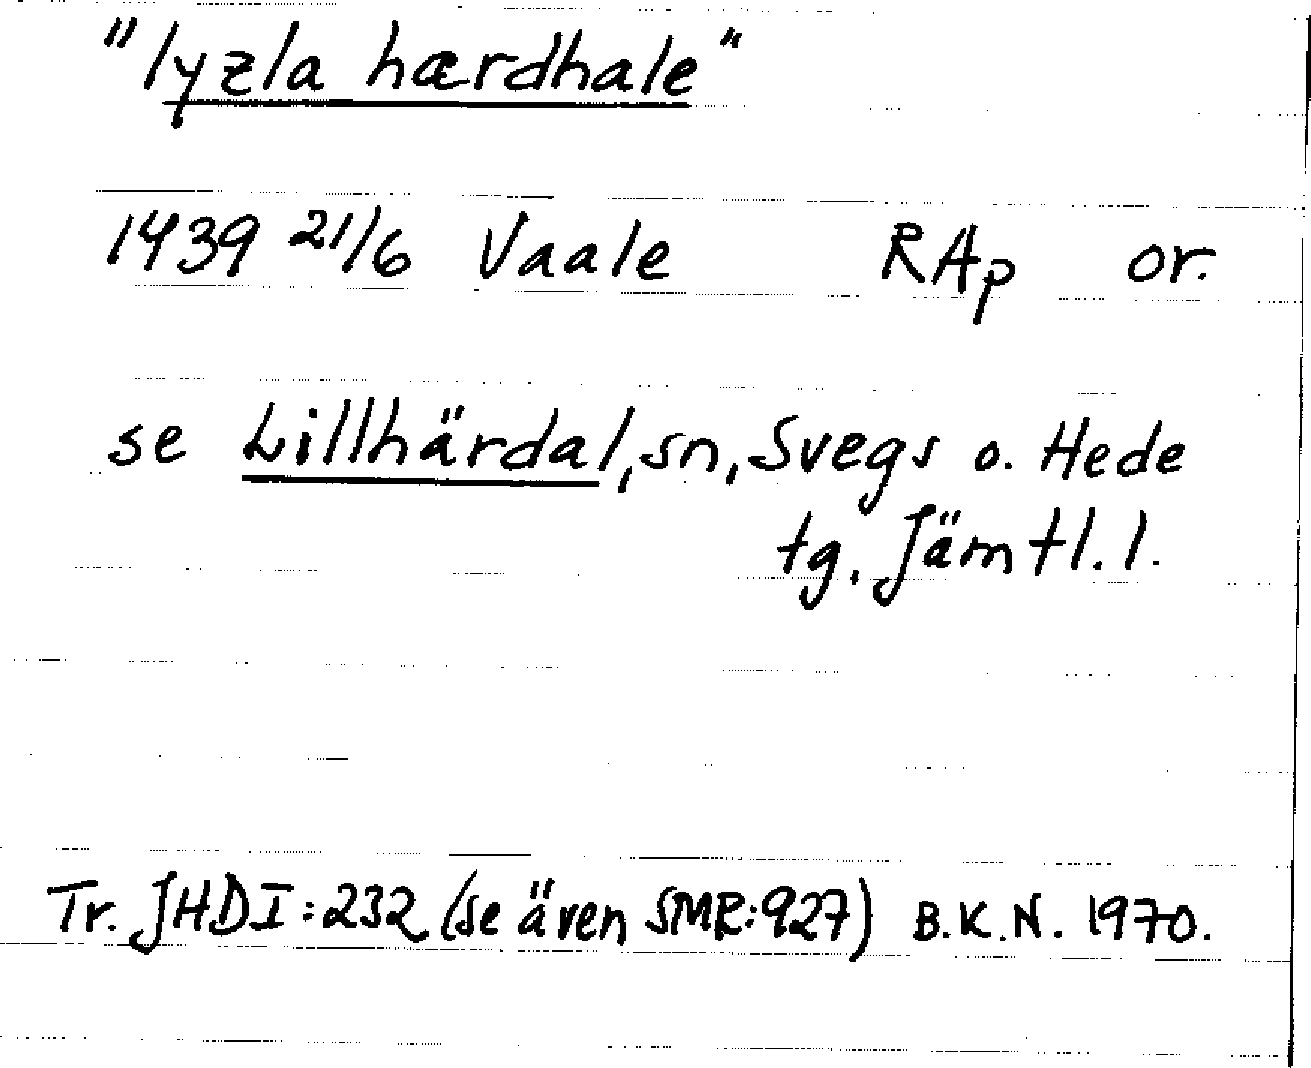 "lyzla hærdhale"
1439 21/6 Vaale RAp or.
se Lillhärdal, sn, Svegs o. Hede
tg. Jämtl. l.
Tr. JHDI:232 (se även SMR:927) B.K.N. 1970.